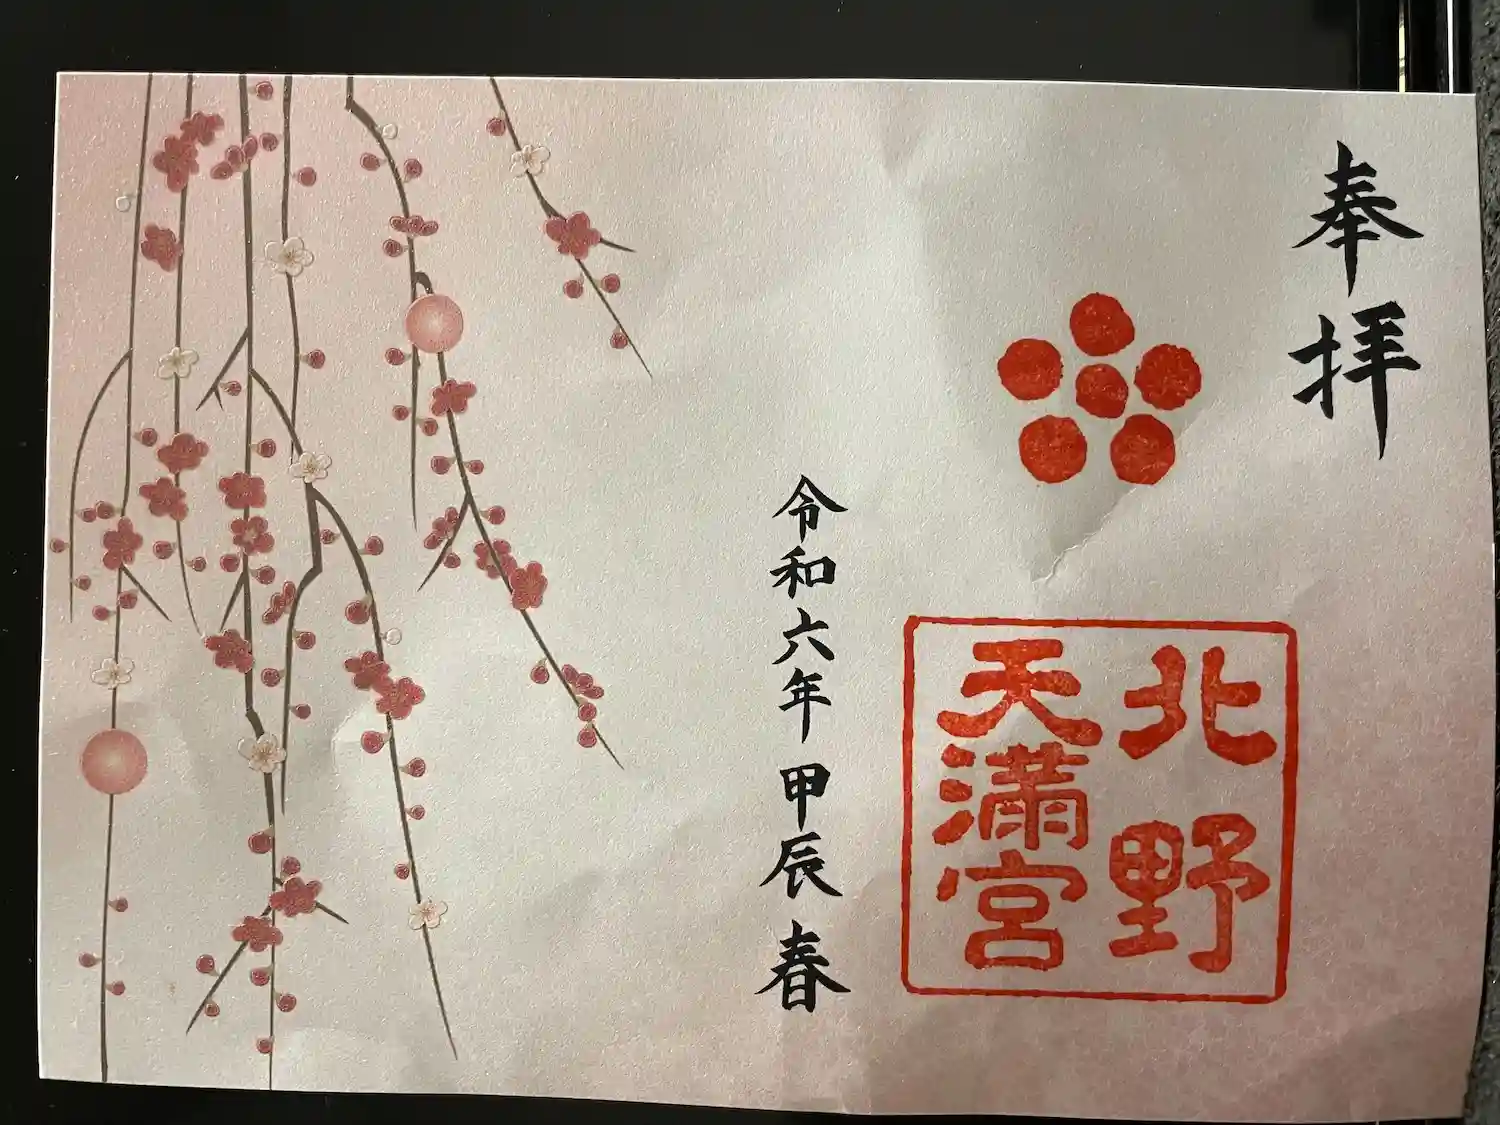 奉拝
北野
天満宮
令和六年 甲辰 春